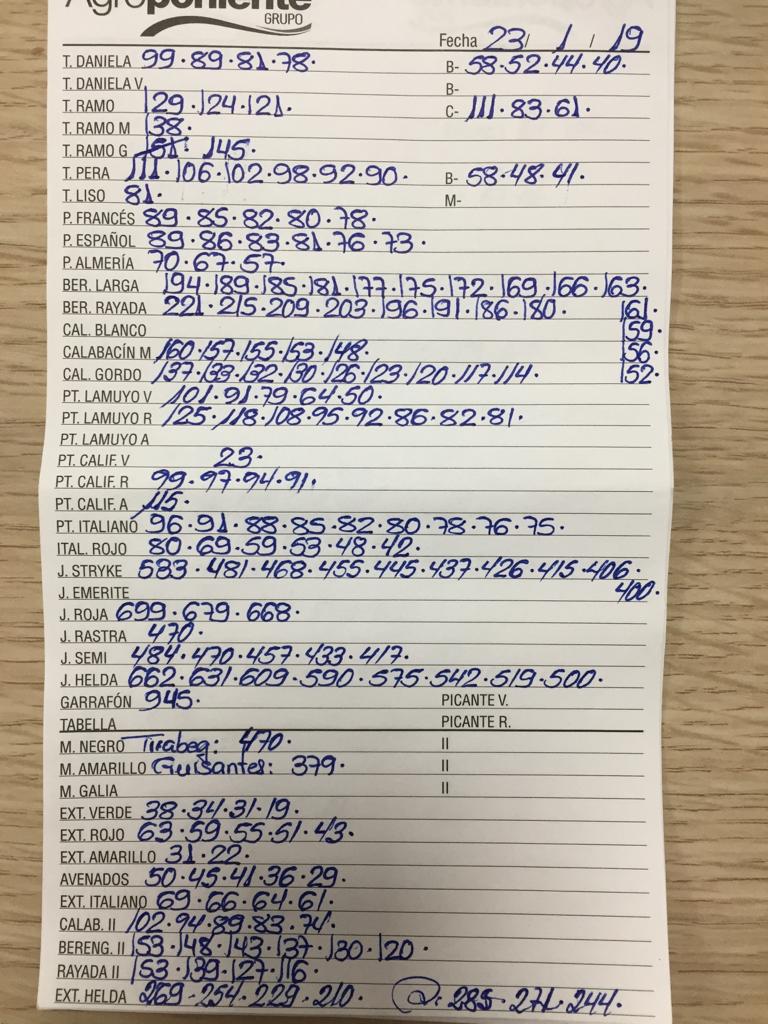 Agroponiente
GRUPO
Fecha 23/ 1 / 19
T. DANIELA 99·89·81·78· B- 58·52·44·40·
T. DANIELA V. B-
T. RAMO 129·124·121· C- 111·83·61·
T. RAMO M 138·
T. RAMO G 145·
T. PERA 111·106·102·98·92·90· B- 58·48·41·
T. LISO 81· M-
P. FRANCÉS 89·85·82·80·78·
P. ESPAÑOL 89·86·83·81·76·73·
P. ALMERÍA 70·67·57·
BER. LARGA 194·189·185·181·177·175·172·169·166·163·
BER. RAYADA 221·215·209·203·196·191·186·180· 161·
CAL. BLANCO 159·
CALABACÍN M 160·157·155·153·148· 156·
CAL. GORDO 137·133·132·130·126·123·120·117·114· 152·
PT. LAMUYO V 101·91·79·64·50·
PT. LAMUYO R 125·118·108·95·92·86·82·81·
PT. LAMUYO A
PT. CALIF. V 23·
PT. CALIF. R 99·97·94·91·
PT. CALIF. A 115·
PT. ITALIANO 96·91·88·85·82·80·78·76·75·
ITAL. ROJO 80·69·59·53·48·42·
J. STRYKE 583·481·468·455·445·437·426·415·406·
J. EMERITE 400·
J. ROJA 699·679·668·
J. RASTRA 470·
J. SEMI 484·470·457·433·417·
J. HELDA 662·631·609·590·575·542·519·500·
GARRAFÓN 945· PICANTE V.
TABELLA PICANTE R.
M. NEGRO Tirabeq: 470· II
M. AMARILLO Guisantes: 379· II
M. GALIA II
EXT. VERDE 38·34·31·19·
EXT. ROJO 63·59·55·51·43·
EXT. AMARILLO 31·22·
AVENADOS 50·45·41·36·29·
EXT. ITALIANO 69·66·64·61·
CALAB. II 102·94·89·83·74·
BERENG. II 153·148·143·137·130·120·
RAYADA II 153·139·127·116·
EXT. HELDA 269·254·229·210· 285·271·244·